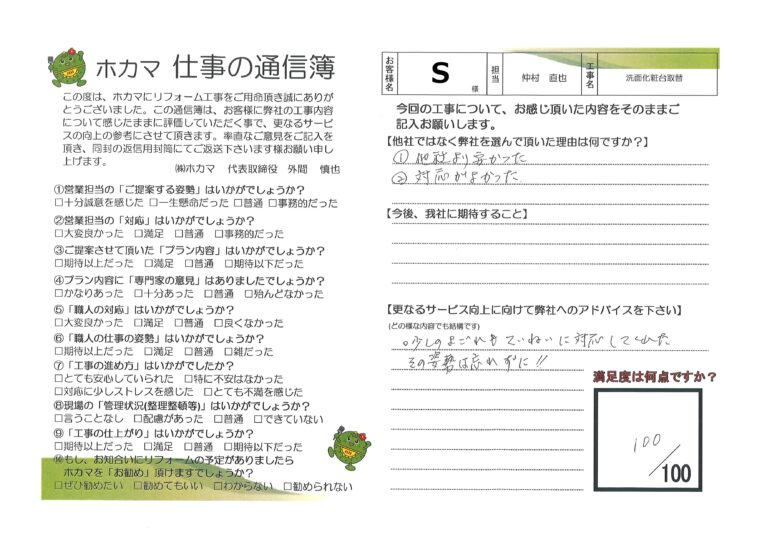 ホカマ 仕事の通信簿
この度は、ホカマにリフォーム工事をご用命頂き誠にありが
とうございました。この通信簿は、お客様に弊社の工事内容
について感じたままに評価していただく事で、更なるサービ
スの向上の参考にさせて頂きます。率直なご意見をご記入を
頂き、同封の返信用封筒にてご返送下さいます様お願い申し
上げます。
㈱ホカマ 代表取締役 外間 慎也
①営業担当の「ご提案する姿勢」はいかがでしょうか？
□十分誠意を感じた □一生懸命だった □普通 □事務的だった
②営業担当の「対応」はいかがでしょうか？
□大変良かった □満足 □普通 □事務的だった
③ご提案させて頂いた「プラン内容」はいかがでしょうか？
□期待以上だった □満足 □普通 □期待以下だった
④プラン内容に「専門家の意見」はありましたでしょうか？
□かなりあった □十分あった □普通 □殆んどなかった
⑤「職人の対応」はいかがでしょうか？
□大変良かった □満足 □普通 □良くなかった
⑥「職人の仕事の姿勢」はいかがでしょうか？
□期待以上だった □満足 □普通 □雑だった
⑦「工事の進め方」はいかがでしたか？
□とても安心していられた □特に不安はなかった
□対応に少しストレスを感じた □とても不満を感じた
⑧現場の「管理状況(整理整頓等)」はいかがでしょうか？
□言うことなし □配慮があった □普通 □できていない
⑨「工事の仕上がり」はいかがでしょうか？
□期待以上だった □満足 □普通 □期待以下だった
⑩もし、お知合いにリフォームの予定がありましたら
ホカマを「お勧め」頂けますでしょうか？
□ぜひ勧めたい □勧めてもいい □わからない □勧められない
お客様名 S 様 担当 仲村 直也 工事名 洗面化粧台取替
今回の工事について、お感じ頂いた内容をそのままご
記入お願いします。
【他社ではなく弊社を選んで頂いた理由は何ですか？】
① 他社より安かった
② 対応がよかった
【今後、我社に期待すること】
【更なるサービス向上に向けて弊社へのアドバイスを下さい】
(どの様な内容でも結構です)
。少しのよごれもていねいに対応してくれた
その姿勢は忘れずに!!
満足度は何点ですか？
100
/100